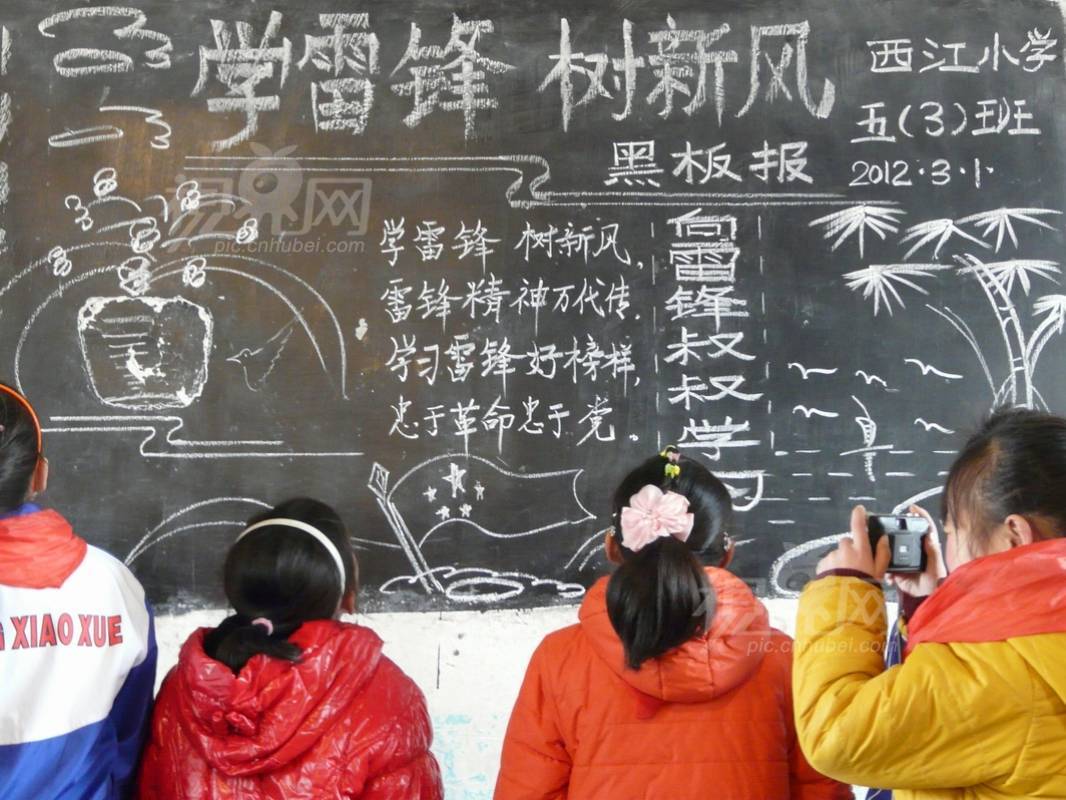 学雷锋 树新风
西江小学
五(3)班
黑板报
2012·3·1·
视界网
pic.cnhubei.com
学雷锋 树新风，
雷锋精神万代传，
学习雷锋好榜样，
忠于革命忠于党。
向雷锋叔叔学习
XIAO XUE
pic.cnhubei.com